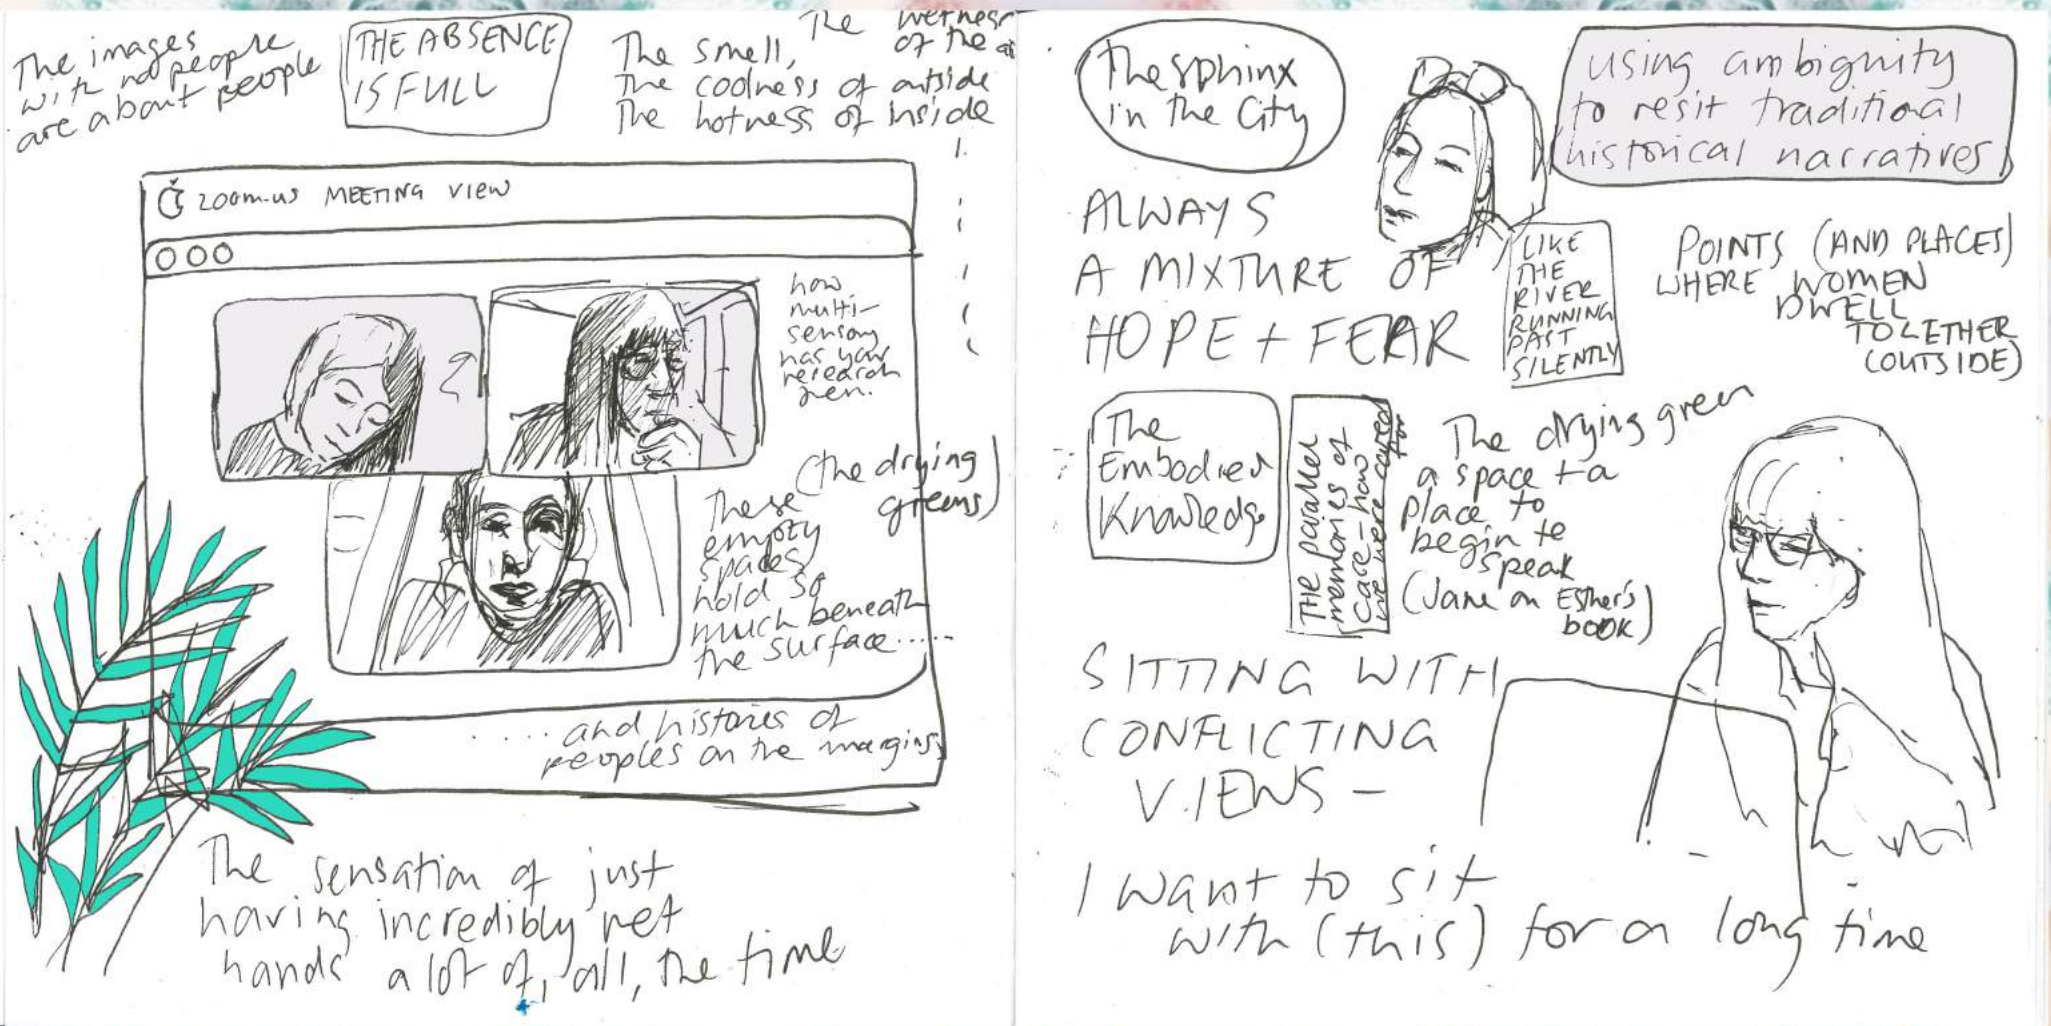 The images
with no people
are about people
THE ABSENCE
IS FULL
The wetness
of the
The smell,
The coolness of outside
The hotness of inside
zoom.us MEETING VIEW
how
multi-
sensory
has your
research
(the drying
greens)
These
empty
spaces
hold so
much beneath
the surface......
.....and histories of
peoples on the margins
The sensation of just
having incredibly wet
hands a lot of, all, the time
The sphinx
in the City
using ambiguity
to resit traditional
historical narratives
ALWAYS
A MIXTURE OF
HOPE + FEAR
LIKE
THE
RIVER
RUNNING
PAST
SILENTLY
POINTS (AND PLACES)
WHERE WOMEN
DWELL
TOGETHER
(OUTSIDE)
The
Embodied
Knowledge
THE parallel
memories of
care - how
we were cared
for
The drying green
a space + a
place to
begin to
speak
(Jane on Esther's
book)
SITTING WITH
CONFLICTING
VIEWS -
I want to sit
with (this) for a long time